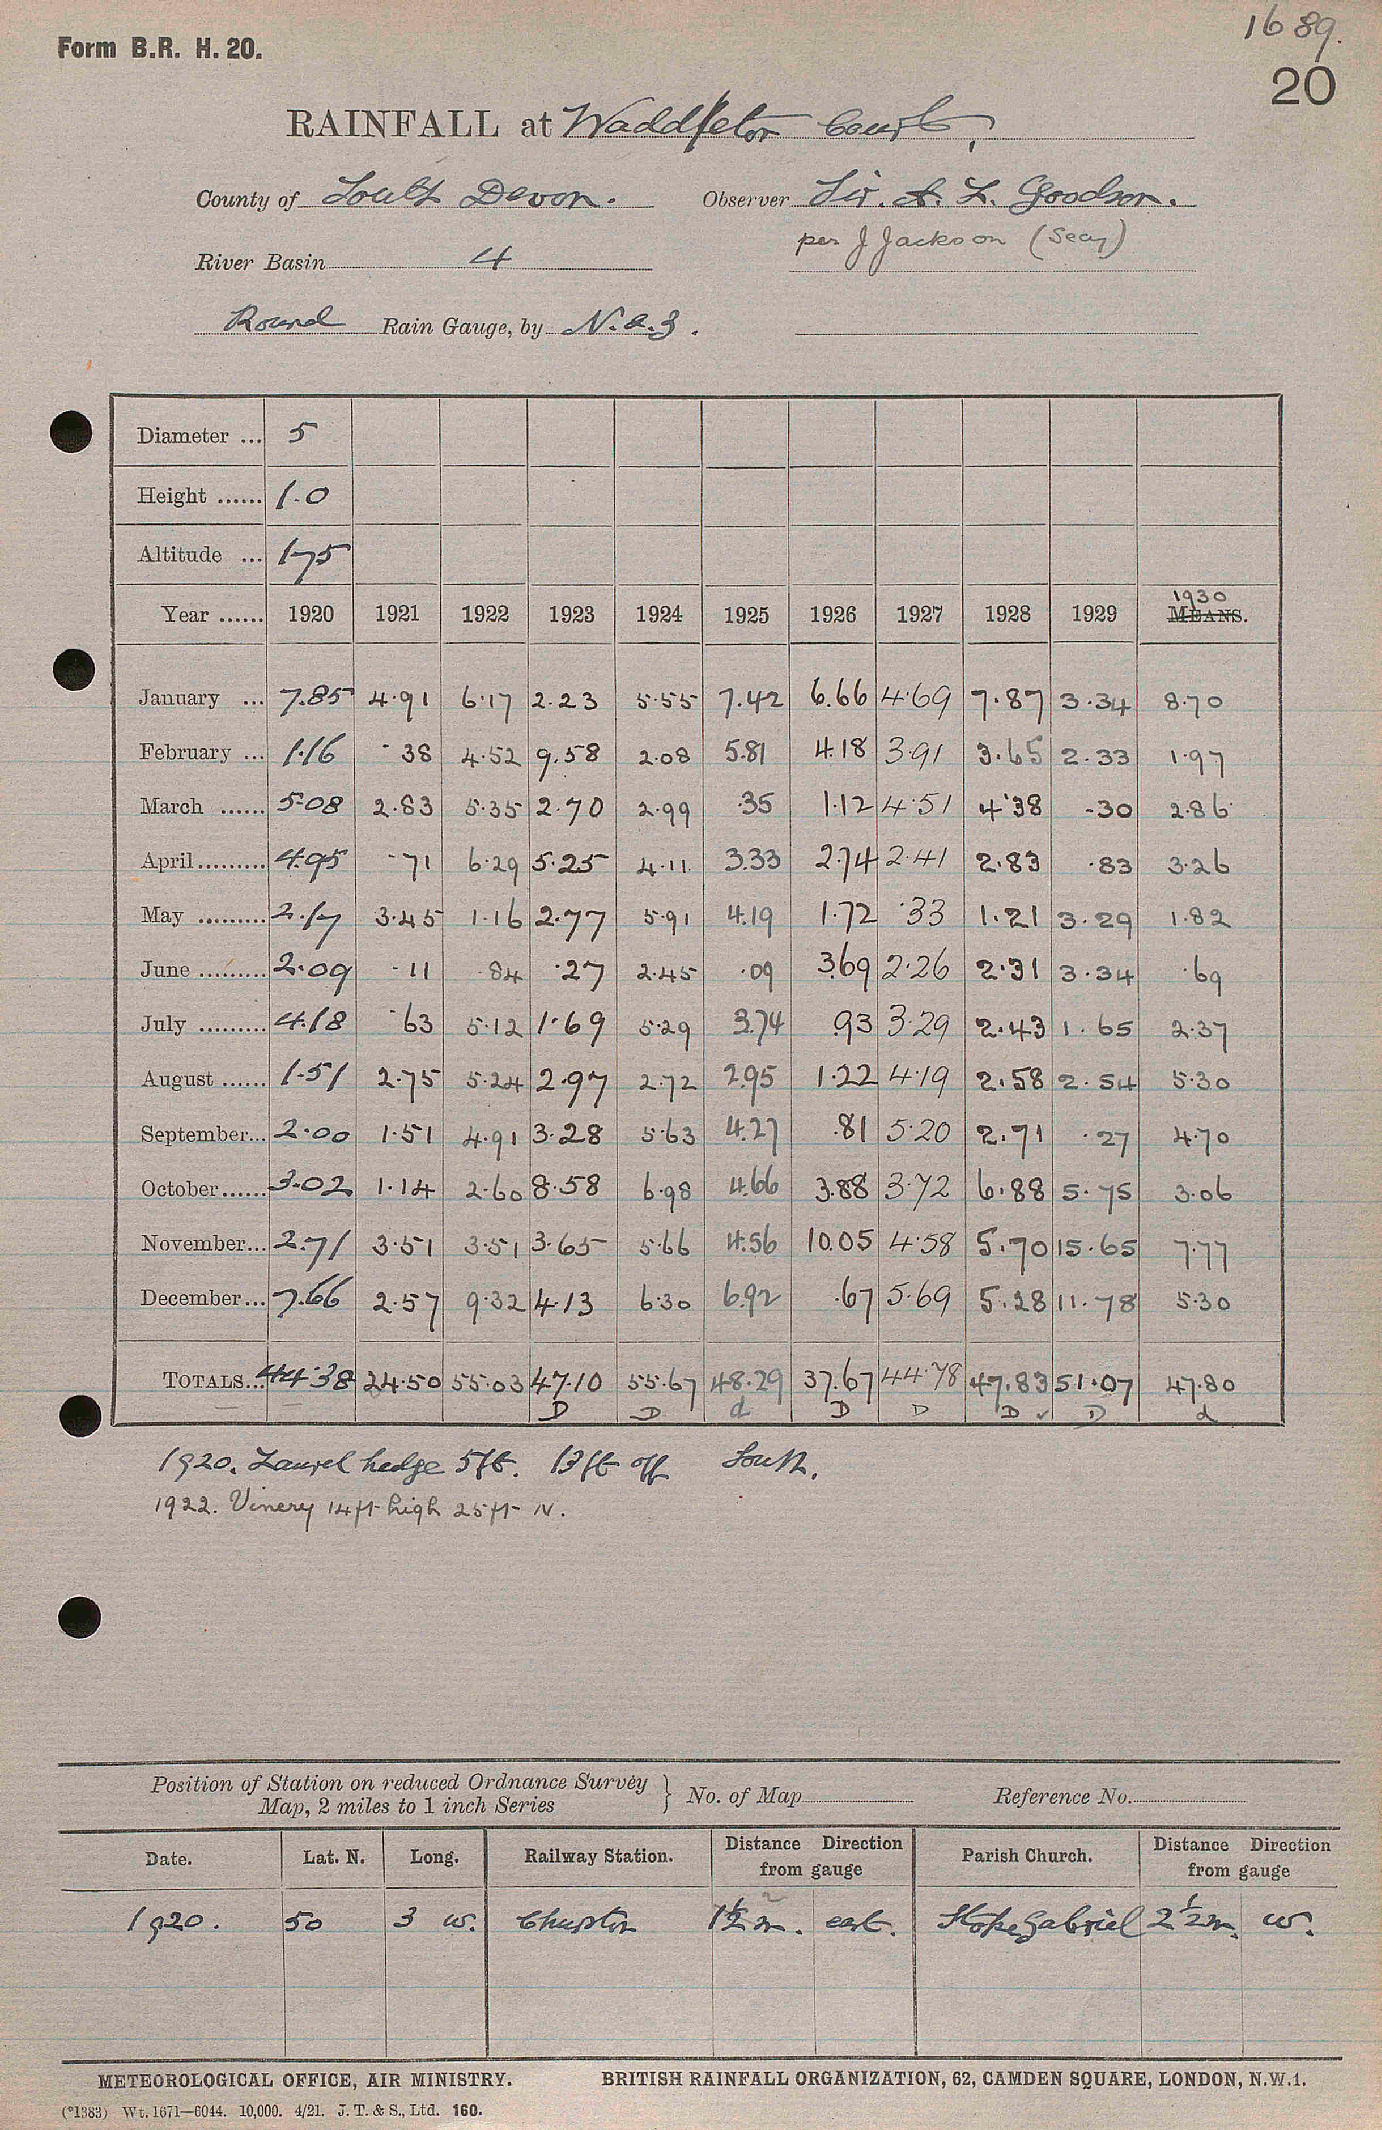 1689.
Form B.R. H. 20.
20
RAINFALL at Waddeton Court,
County of South Devon. Observer Sir. A. L. Goodson.
per J Jackson (Secy)
River Basin 4
Round Rain Gauge, by N. & Z.
Diameter ... 5
Height ...... 1.0
Altitude ... 175
1930
Year ...... 1920 1921 1922 1923 1924 1925 1926 1927 1928 1929 MEANS.
January ... 7.85 4.91 6.17 2.23 5.55 7.42 6.66 4.69 7.87 3.34 8.70
February ... 1.16 .38 4.52 9.58 2.08 5.81 4.18 3.91 3.65 2.33 1.97
March ...... 5.08 2.83 5.35 2.70 2.99 .35 1.12 4.51 4.38 .30 2.86
April ......... 4.95 .71 6.29 5.25 4.11 3.33 2.74 2.41 2.83 .83 3.26
May ......... 2.17 3.45 1.16 2.77 5.91 4.19 1.72 .33 1.21 3.29 1.82
June ......... 2.09 .11 .84 .27 2.45 .09 3.69 2.26 2.31 3.34 .69
July ......... 4.18 .63 5.12 1.69 5.29 3.74 .93 3.29 2.43 1.65 2.37
August ...... 1.51 2.75 5.24 2.97 2.72 2.95 1.22 4.19 2.58 2.54 5.30
September... 2.00 1.51 4.91 3.28 5.63 4.27 .81 5.20 2.71 .27 4.70
October...... 3.02 1.14 2.60 8.58 6.98 4.66 3.88 3.72 6.88 5.75 3.06
November... 2.71 3.51 3.51 3.65 5.66 4.56 10.05 4.58 5.70 15.65 7.77
December... 7.66 2.57 9.32 4.13 6.30 6.92 .67 5.69 5.28 11.78 5.30
TOTALS... 44.38 24.50 55.03 47.10 55.67 48.29 37.67 44.78 47.83 51.07 47.80
D D d D D D ✓ D d
1920. Laurel hedge 5ft. 13ft off South.
1922. Vinery 14ft high 25ft N.
Position of Station on reduced Ordnance Survey
Map, 2 miles to 1 inch Series } No. of Map Reference No.
Date. Lat. N. Long. Railway Station. Distance Direction from gauge Parish Church. Distance Direction from gauge
1920. 50 3 W. Churston 1½ m. east. Stoke Gabriel 2½m. W.
METEOROLOGICAL OFFICE, AIR MINISTRY. BRITISH RAINFALL ORGANIZATION, 62, CAMDEN SQUARE, LONDON, N.W.1.
(*1383) Wt. 1671—6044. 10,000. 4/21. J. T. & S., Ltd. 160.